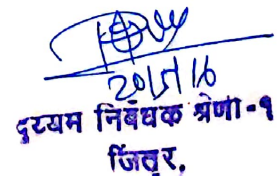 20/5/16
दुय्यम निबंधक श्रेणी-१
जिंतूर.